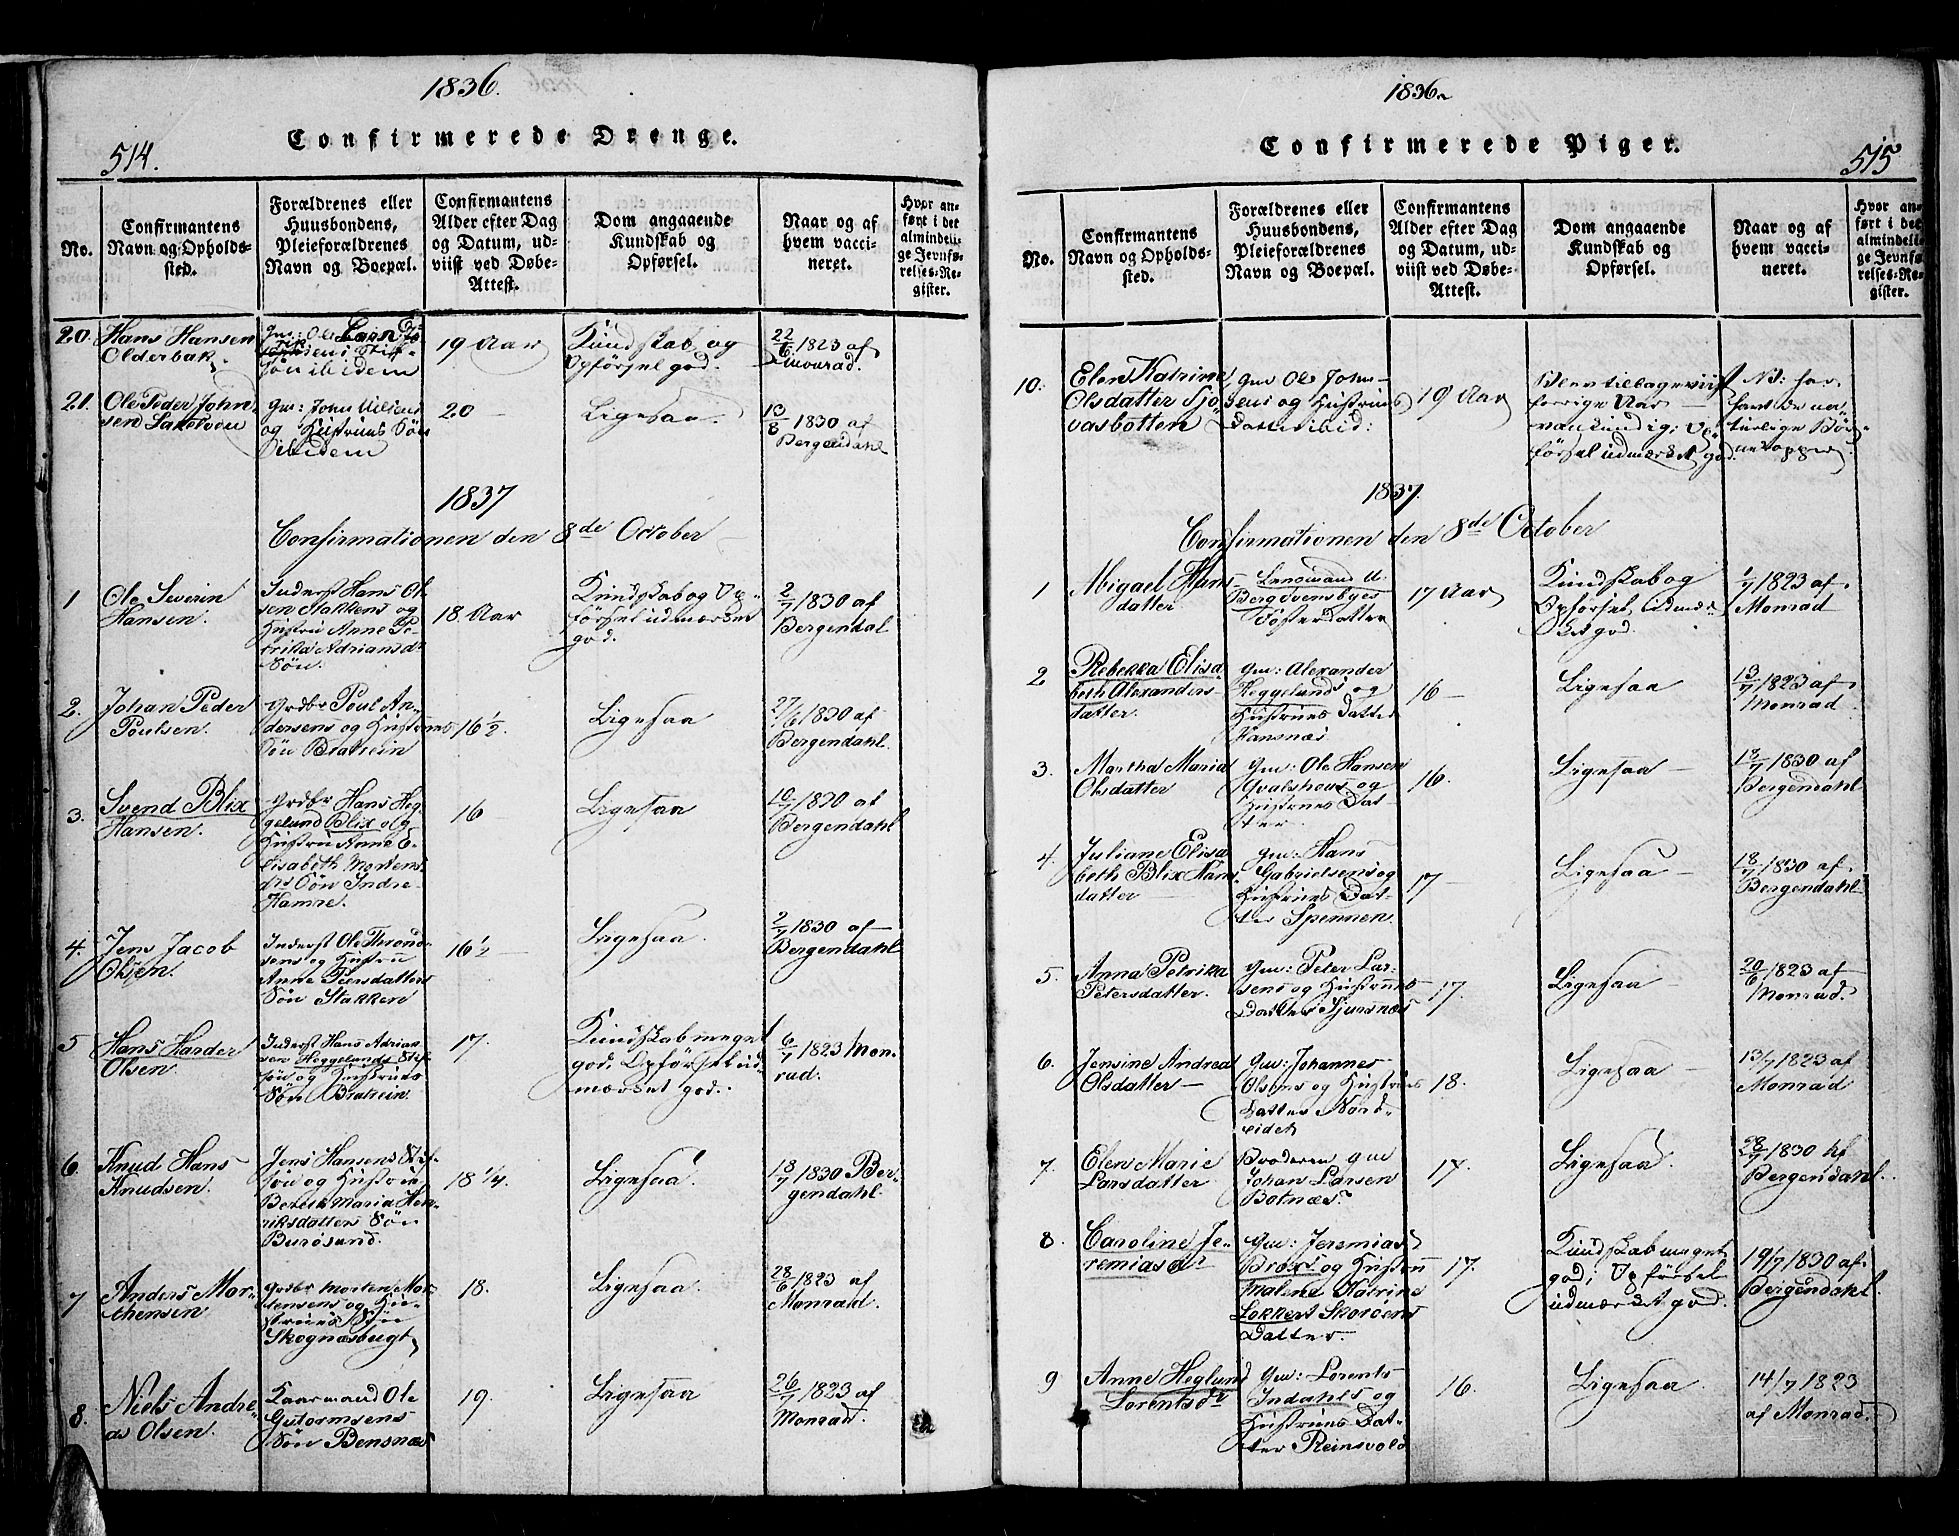 1836.
Confirmerede Drenge.
514.
No.
Confirmantens
Navn og Opholds-
sted.
Forældrenes eller
Huusbondens,
Pleieforældrenes
Navn og Boepæl.
Confirmantens
Alder efter Dag
og Datum, ud-
viist ved Døbe-
Attest.
Dom angaaende
Kundskab og
Opførsel.
Naar og af
hvem vacci-
neret.
Hvor an-
ført i det
almindeli-
ge Jevnfø-
relses-Re-
gister.
20.
Hans Hansen
Olderbak
Gm: Ole
Stif-
søn ibidem
19 Aar
Kundskab og
Opførsel god.
22/6 1823 af
Monrad.
21.
Ole Peder John-
sen
Gm: John Nilsens
og Hustrues Søn
ibidem
20 —
Ligesaa.
13/8 1830 af
Bergendahl
1837
Confirmationen den 8de October
1
Ole Severin
Hansen.
Inderst Hans Ol-
sen Stakkens og
Hustru Anne Pe-
trika Adriansdr
Søn.
18 Aar
Kundskab og Op-
førsel udmærket
god.
2/7 1830 af
Bergendal
2.
Johan Peder
Poulsen.
Grdbr Poul An-
dersens og Hustrues
Søn Bratrein
16 1/2.
Ligesaa
27/6 1830 af
Bergendahl.
3.
Svend Blix
Hansen.
Grdbr Hans Heg-
gelund Blix og
Hustru Anne E-
lisabeth Mortens-
drs Søn Indre-
Hamre.
16 —
Ligesaa
10/7 1830 af
Bergendahl
4.
Jens Jacob
Olsen.
Inderst Ole Thrond-
sens og Hustru
Anne Peersdatters
Søn Stakken
16 1/2 —
Ligesaa.
2/7 1830 af
Bergendahl
5
Hans Harder
Olsen.
Inderst Hans Adrian-
sen Heggelunds Stif-
søn og Hustrues
Søn Bratrein.
17.
Kundskab meget
god, Opførsel ud-
mærket god.
6/7 1823 Mon-
rad.
6.
Knud Hans
Knudsen.
Jens Hansens Stif-
søn og Hustrue,
Bereth Maria Hen-
riksdatters Søn
Burøsund.
18 1/4.
Ligesaa
18/7 1830 Ber-
gendahl.
7
Anders Mor-
thensen
Grdbr Morten Mor-
tensens og Hu-
strues Søn
Skognæsbugt
18.
Ligesaa.
28/6 1823 af
Monrad.
8.
Niels Andre-
as Olsen.
Kaarmand Ole
Gutormsens
Søn Bensnæs
19.
Ligesaa
26/7 1823 af
Monrad.
1836
Confirmerede Piger.
515
No.
Confirmantens
Navn og Opholds-
sted.
Forældrenes eller
Huusbondens,
Pleieforældrenes
Navn og Boepæl.
Confirmantens
Alder efter Dag
og Datum, ud-
viist ved Døbe-
Attest.
Dom angaaende
Kundskab og
Opførsel.
Naar og af
hvem vacci-
neret.
Hvor an-
ført i det
almindeli-
ge Jevnfø-
relses-Re-
gister.
10.
Elen Katrine
Olsdatter Sjø-
vasbotten
Gm Ole John-
sens og Hustrues
Datter ibid:
19 Aar
Blev tilbageviist
forrige Aar —
vankundig; Op-
førsel udmærket god.
NB: har
havt de na-
turlige Bør-
nekopper
1837.
Confirmationen den 8de October
1
Abigael Hans-
datter
Lensmand U.
Berg Svensbyes
Fosterdatter
17 Aar
Kundskab og
Opførsel, udmær-
ket god.
1/7 1823 af
Monrad
2
Rebekka Elisa-
beth Alexanders-
datter.
Gm: Alexander
Heggelunds og
Hustrues Datter
Hansnæs
16 —
Ligesaa
13/7 1823 af
Monrad.
3.
Martha Maria
Olsdatter
Gm: Ole Hansen
Hvalshous og
Hustrues Dat-
ter.
16.
Ligesaa —
18/7 1830 af
Bergendahl
4.
Juliane Elisa-
beth Blix Hans-
datter —
Gm: Hans
Gabrielsens og
Hustrues Dat-
ter Spennen.
17 —
Ligesaa —
18/7 1830 af
Bergendahl.
5.
Anna Petrika
Petersdatter.
Gm: Peter Lar-
sens og Hustrues
Datter Sjursnæs
17.
Ligesaa —
20/6 1823 af
Monrad.
6.
Jensine Andrea
Olsdatter —
Gm: Johannes
Olsens og Hustrues
Datter Nord-
eidet
18.
Ligesaa —
13/7 1823 af
Monrad
7.
Elen Marie
Larsdatter
Broderen Gm
Johan Larsen
Botnæs.
17.
Ligesaa.
28/7 1830 af
Bergendahl.
8.
Caroline Je-
remiasdr
Gm: Jeremias
Brox's og Hustru
Malene Katrine
Lokkert Skorøens
Datter.
17.
Kundskab meget
god; Opførsel
udmærket god.
19/7 1830 af
Bergendahl.
9
Anne Heglund
Lorentsdr
Gm: Lorents
Indahls og
Hustrues Dat-
ter Reinsvold
16.
Ligesaa.
14/7 1823
af Monrad.